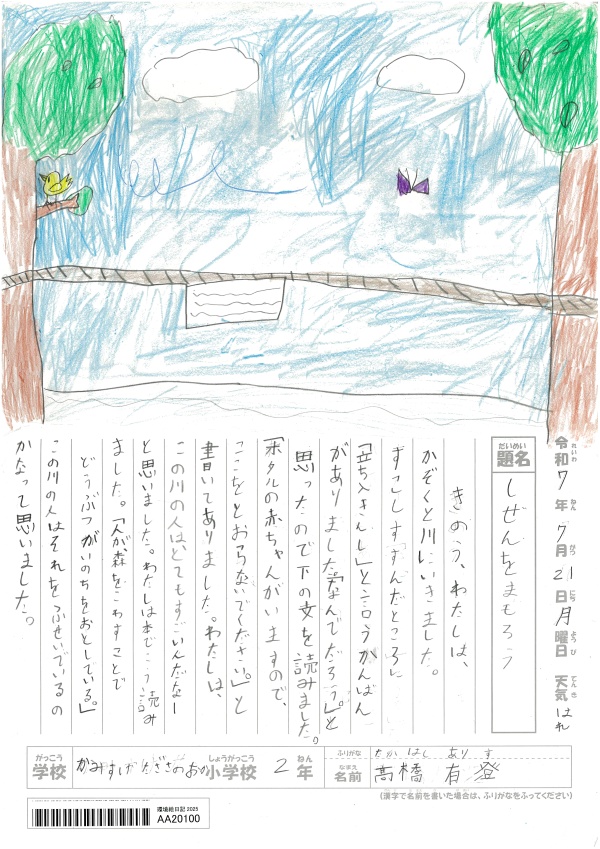 令和7年7月21日月曜日 天気 はれ
れいわ ねん がつ にち ようび てんき
だいめい
題名
しぜんをまもろう
きのう、わたしは、
かぞくと川にいきました。
すこしすすんだところに
「立ち入きんし」と言うかんばん
がありました。「なんでだろう。」と
思ったので下の文を読みました。
「ホタルの赤ちゃんがいますので、
ここをとおらないでください。」と
書いてありました。わたしは、
この川の人は、とてもすごいんだなー
と思いました。わたしは本でこう読み
ました。「人が森をこわすことで
どうぶつがいのちをおとしている。」
この川の人はそれをふせいでいるの
かなって思いました。
がっこう しょうがっこう ねん
学校 かみすげたささのおか小学校 2年
ふりがな たかはし ありす
なまえ
名前 髙橋 有澄
(漢字で名前を書いた場合は、ふりがなをふってください)
環境絵日記 2025
AA20100